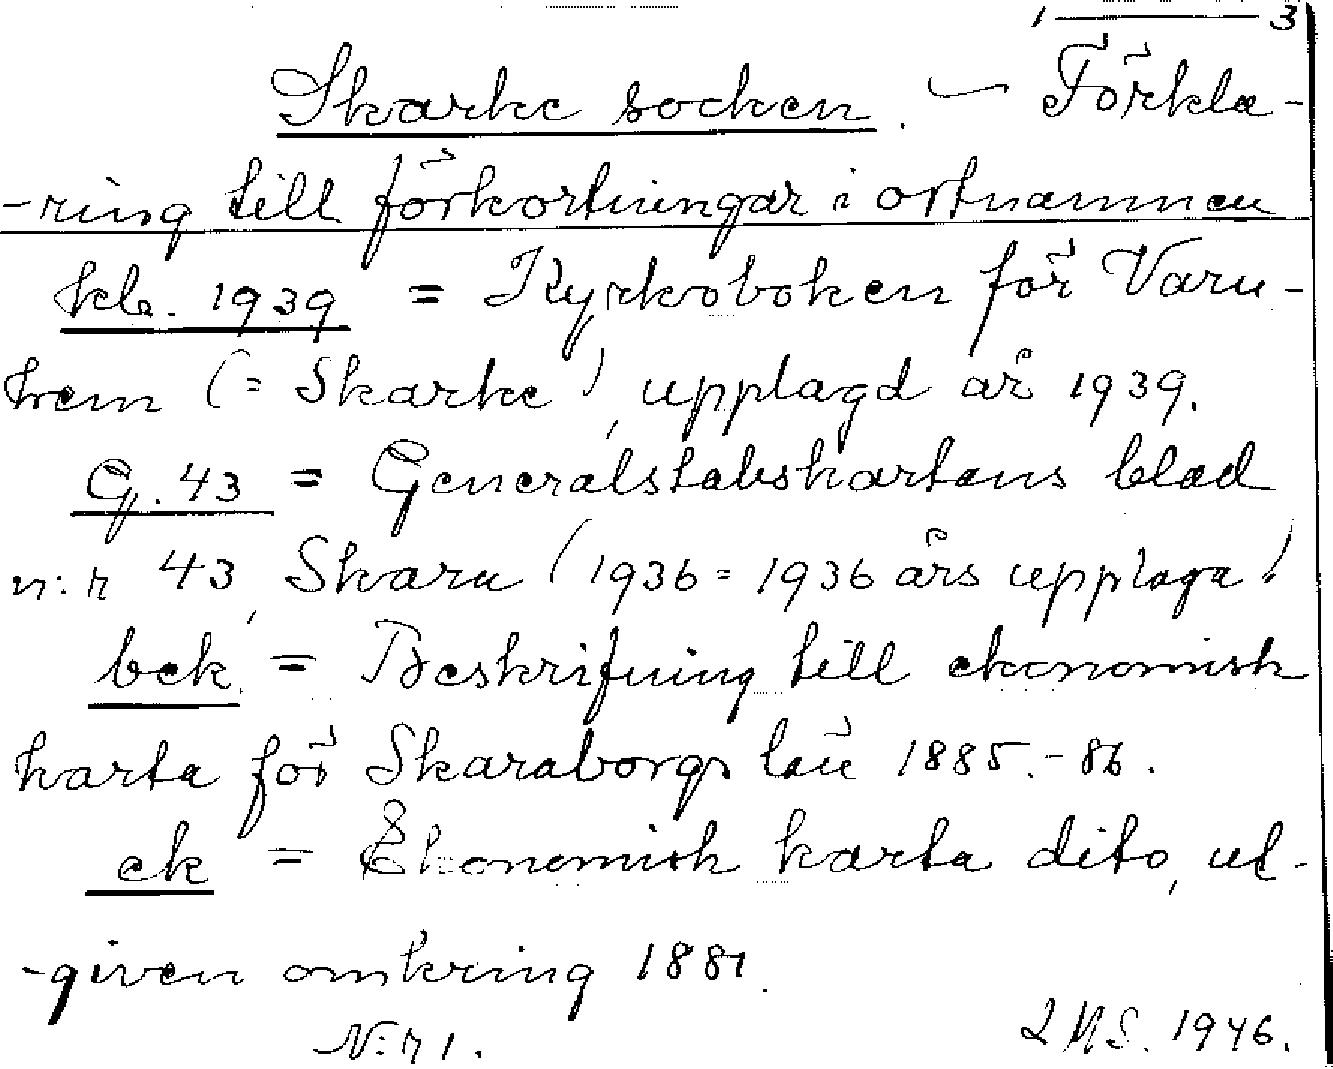 1 — 3
Skarke socken. — Förkla-
-ring till förkortningar i ortnamnen
kb. 1939 = Kyrkoboken för Varn-
hem (= Skarke), upplagd år 1939.
G. 43 = Generalstabskartans blad
n:r 43, Skara (1936 = 1936 års upplaga)
bek. = Beskrifning till ekonomisk
karta för Skaraborgs län 1885.-86.
ek = Ekonomisk karta dito, ut-
-given omkring 1881.
N:r 1.
1946.